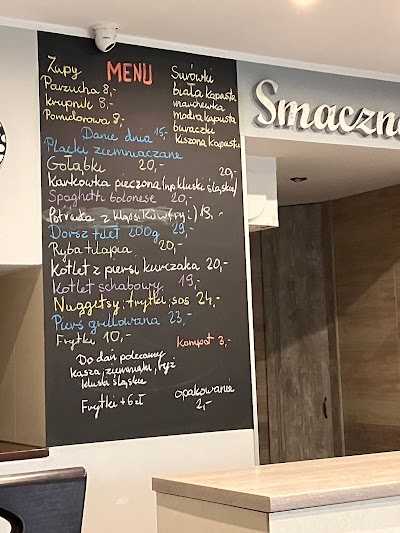 MENU
Zupy
Parzucha 8,-
krupnik 8,-
Pomidorowa 8,-
Surówki
biała kapusta
marchewka
modra kapusta
buraczki
kiszona kapusta
Danie dnia 15,-
Placki ziemniaczane 20,-
Gołąbki 20,-
Karkówka pieczona (np kluski śląskie)
Spaghetti bolonese 20,-
Potrawka z
Dorsz filet 200g 29,-
Ryba tilapia 20,-
Kotlet z piersi kurczaka 20,-
Kotlet schabowy 19,-
Nuggetsy, frytki, sos 24,-
Pierś grillowana 23,-
Frytki 10,-
Kompot 3,-
Do dań polecamy
kasza, ziemniaki, ryż
kluski śląskie
Frytki +6zł
opakowanie
2,-
Smaczn